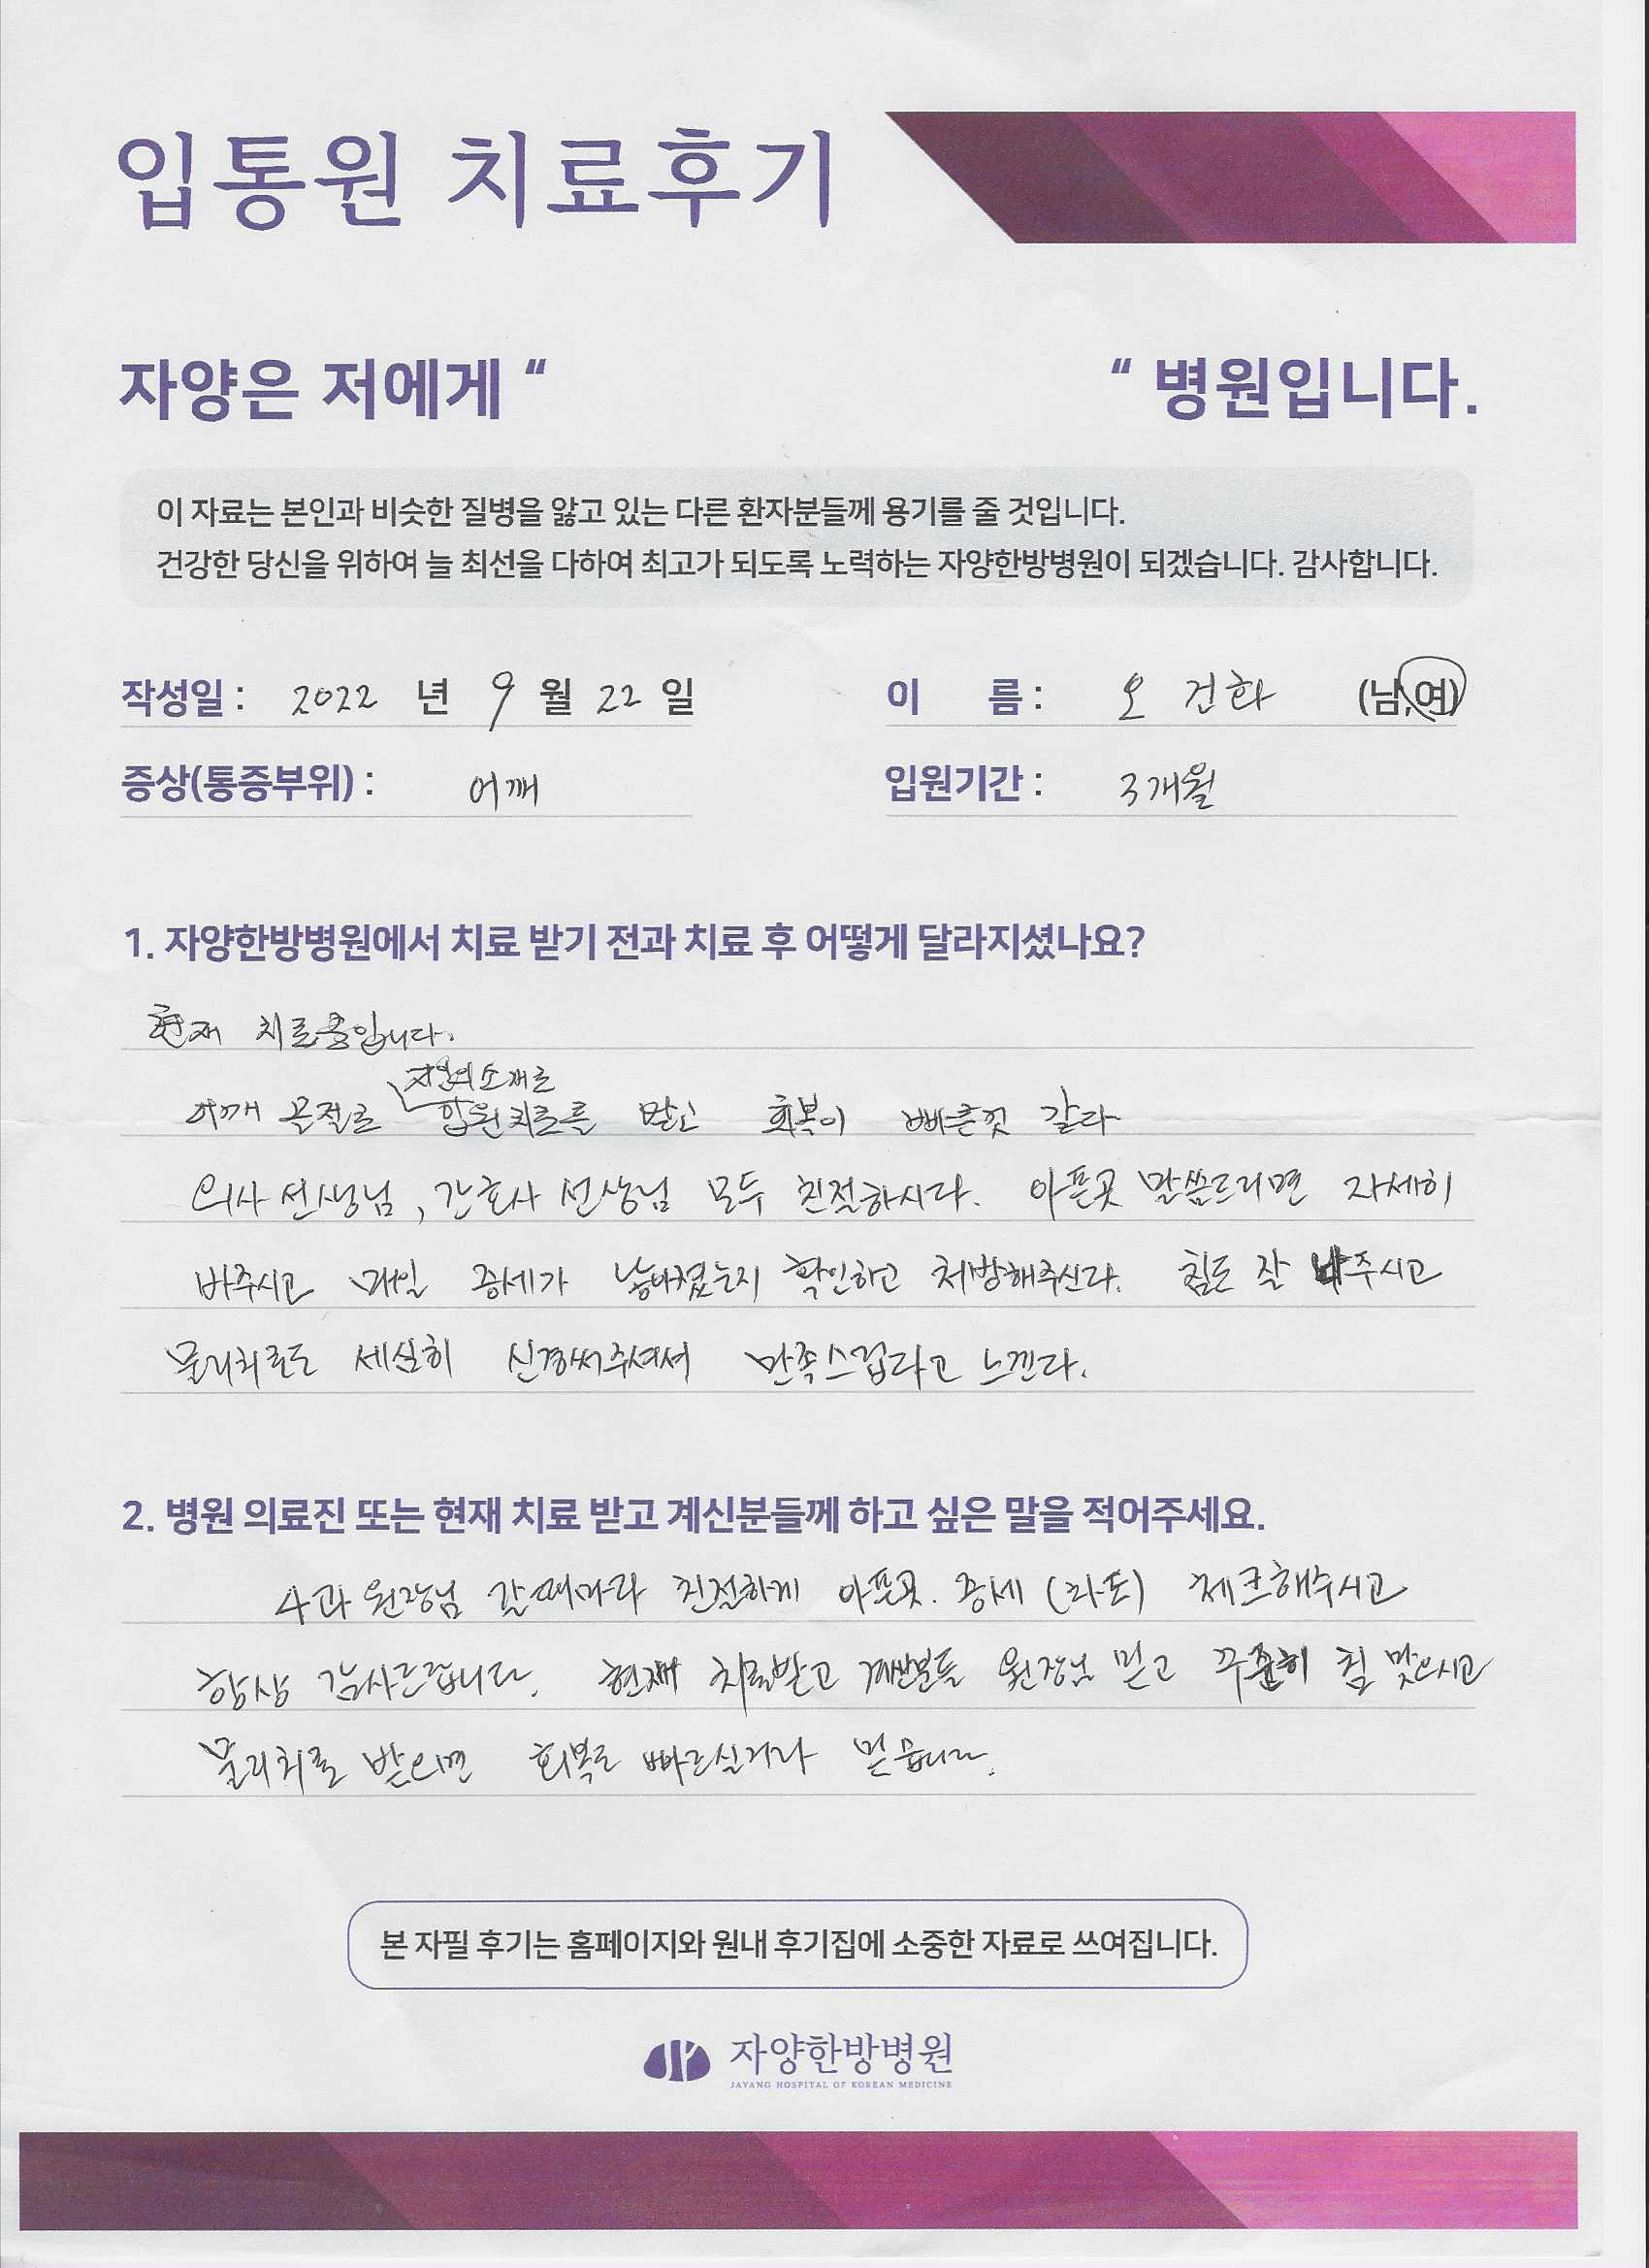 입통원 치료후기
자양은 저에게 “ “ 병원입니다.
이 자료는 본인과 비슷한 질병을 앓고 있는 다른 환자분들께 용기를 줄 것입니다.
건강한 당신을 위하여 늘 최선을 다하여 최고가 되도록 노력하는 자양한방병원이 되겠습니다. 감사합니다.
작성일 : 2022 년 9 월 22 일
이 름 : 오 건화 (남,여)
증상(통증부위) : 어깨
입원기간 : 3개월
1. 자양한방병원에서 치료 받기 전과 치료 후 어떻게 달라지셨나요?
현재 치료중입니다.
지인의 소개로
어깨 골절로 입원치료를 받고 회복이 빠른것 같다
의사 선생님, 간호사 선생님 모두 친절하시다. 아픈곳 말씀드리면 자세히
봐주시고 매일 증세가 낳아졌는지 확인하고 처방해주신다. 침도 잘 놔주시고
물리치료도 세심히 신경써주셔서 만족스럽다고 느낀다.
2. 병원 의료진 또는 현재 치료 받고 계신분들께 하고 싶은 말을 적어주세요.
4과 원장님 갈때마다 친절하게 아픈곳. 증세 (차트) 체크해주시고
항상 감사드립니다. 현재 치료받고 계신분들 원장님 믿고 꾸준히 침 맞으시고
물리치료 받으면 회복도 빠르실거라 믿습니다.
본 자필 후기는 홈페이지와 원내 후기집에 소중한 자료로 쓰여집니다.
자양한방병원
JAYANG HOSPITAL OF KOREAN MEDICINE